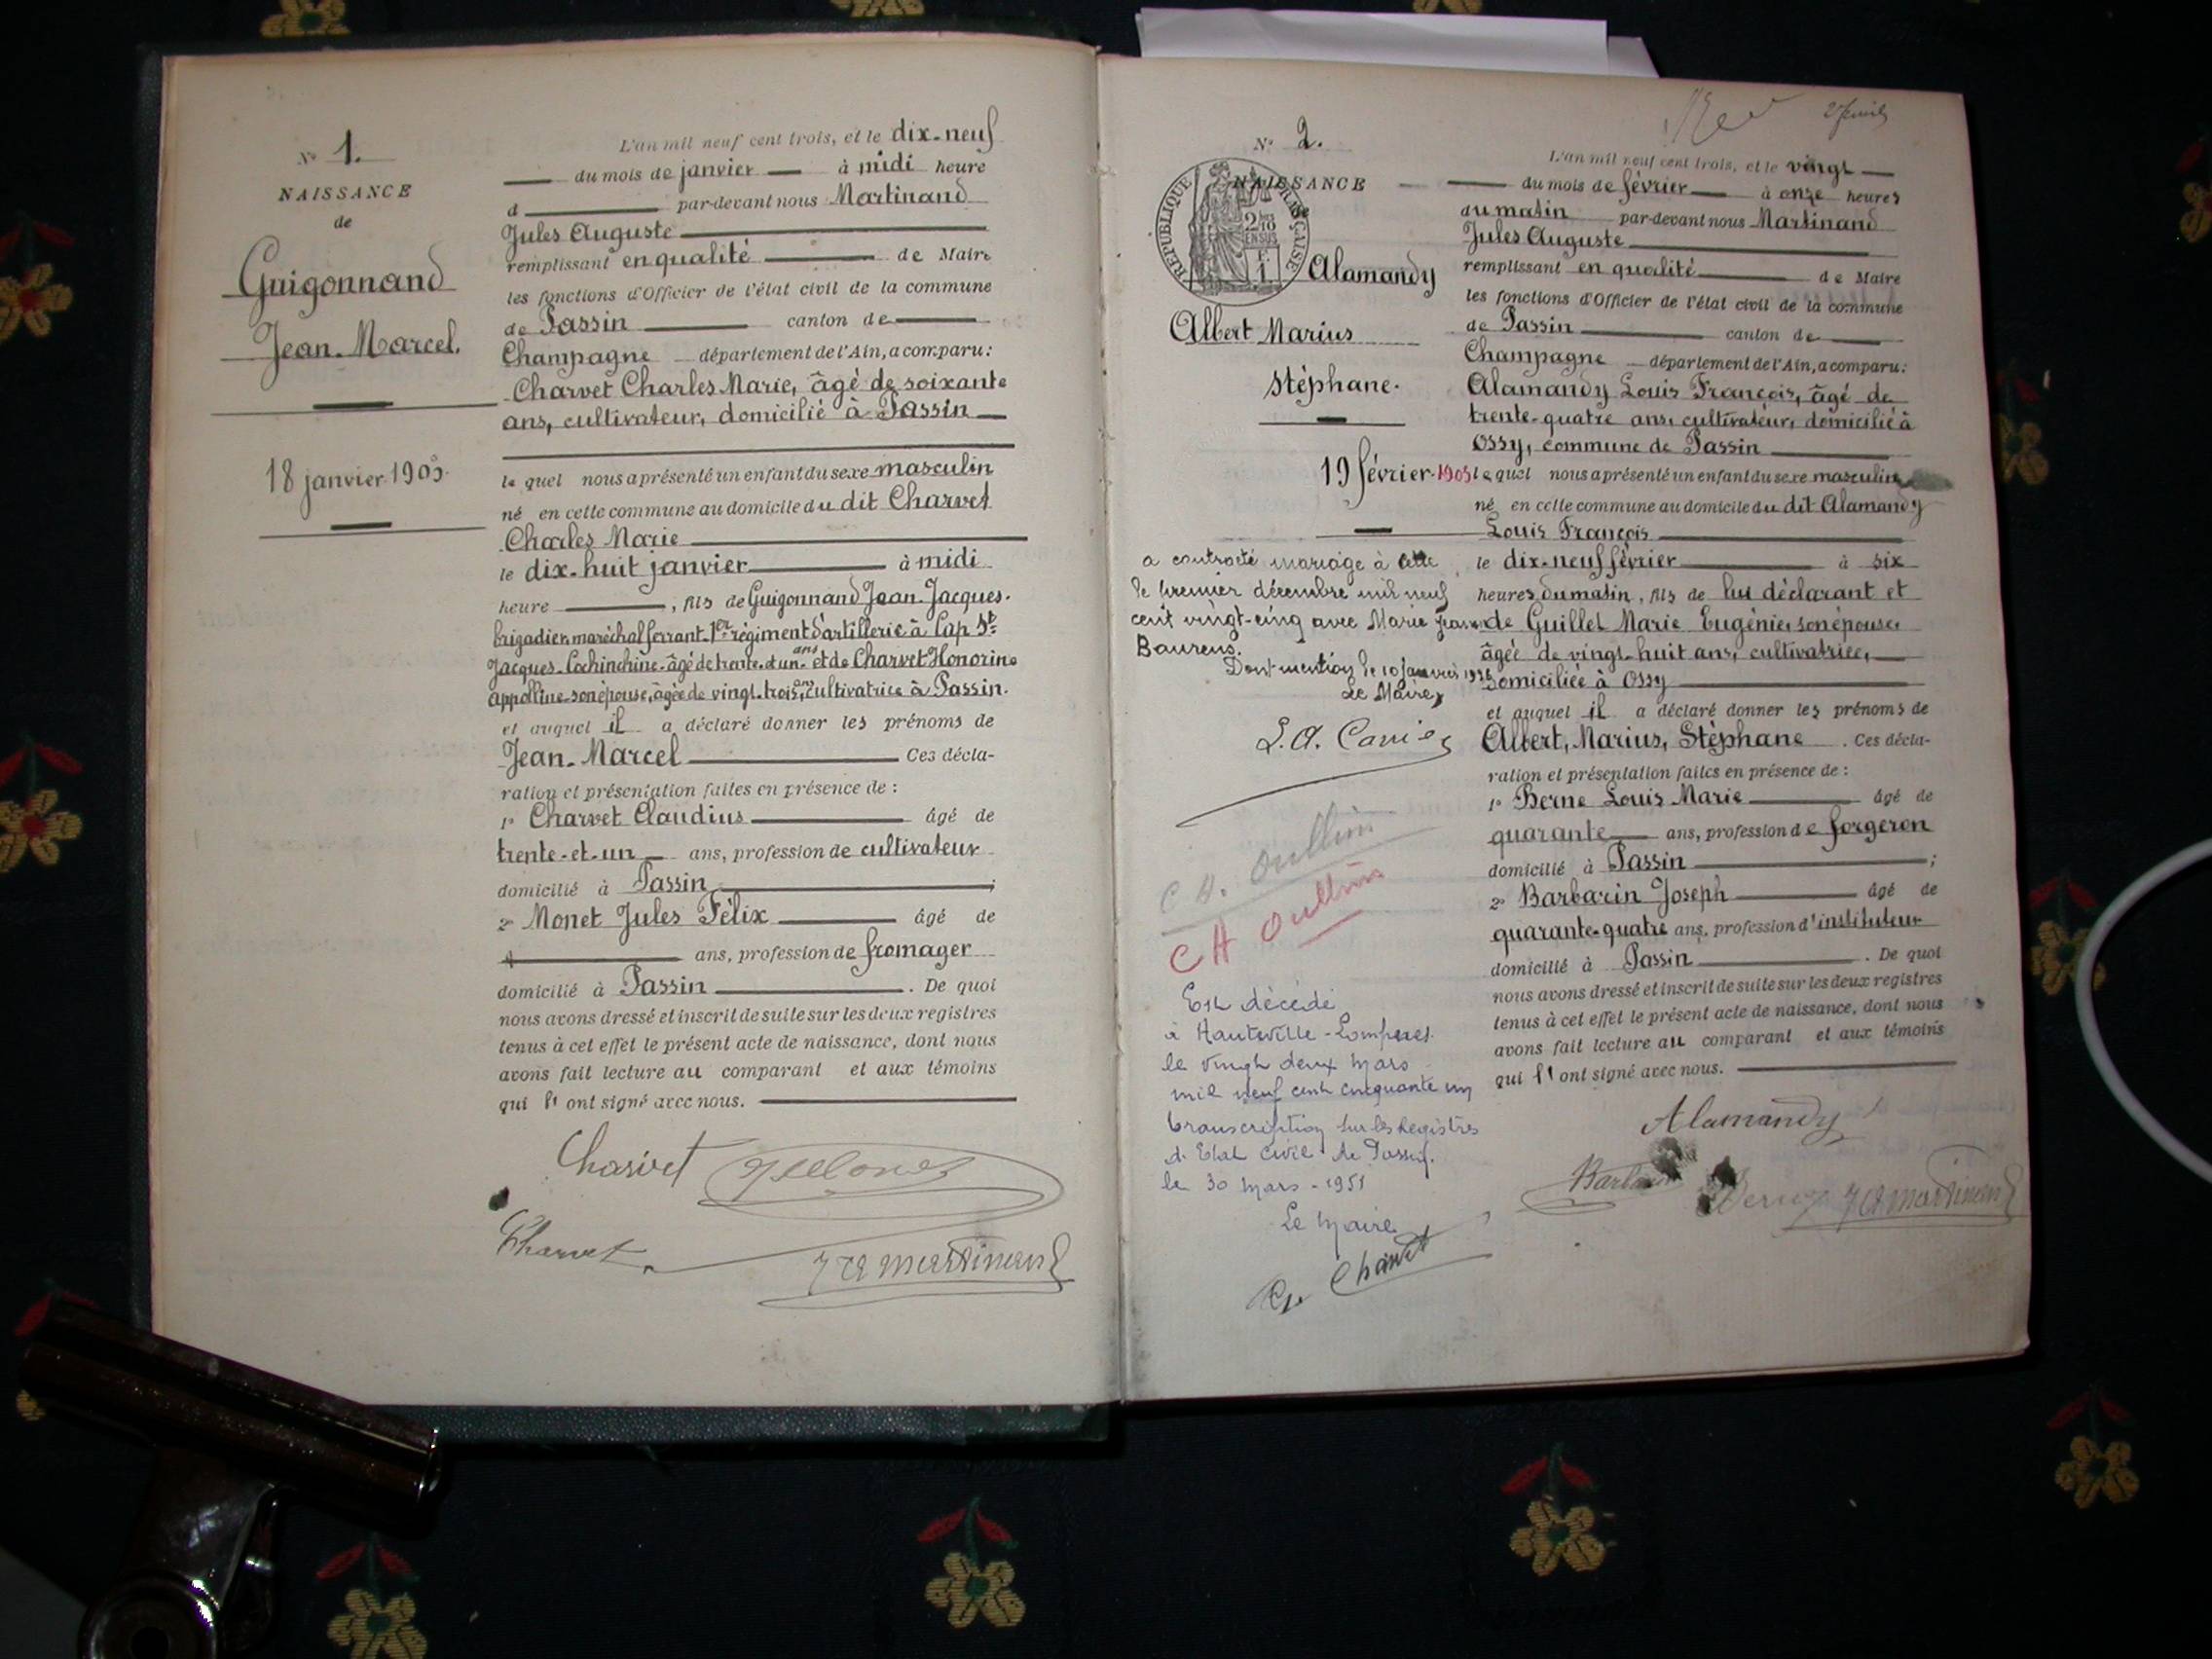 N° 1.
NAISSANCE
de
Guigonnand
Jean-Marcel.
18 janvier 1903.
L'an mil neuf cent trois, et le dix-neuf
du mois de janvier à midi heure
d par-devant nous Martinand
Jules Auguste
remplissant en qualité de Maire
les fonctions d'Officier de l'état civil de la commune
de Passin canton de
Champagne département de l'Ain, a comparu:
Charvet Charles Marie, âgé de soixante
ans, cultivateur, domicilié à Passin
le quel nous a présenté un enfant du sexe masculin
né en cette commune au domicile du dit Charvet
Charles Marie
le dix-huit janvier à midi
heure , fils de Guigonnand Jean-Jacques.
brigadier maréchal ferrant 1er régiment d'artillerie à Cap St
Jacques-Cochinchine-âgé de trente et un ans et de Charvet Honorine
Appolline son épouse, âgée de vingt-trois ans, cultivatrice à Passin.
et auquel il a déclaré donner les prénoms de
Jean-Marcel Ces décla-
ration et présentation faites en présence de :
1° Charvet Claudius âgé de
trente-et-un ans, profession de cultivateur
domicilié à Passin ;
2° Monet Jules Félix âgé de
ans, profession de fromager
domicilié à Passin . De quoi
nous avons dressé et inscrit de suite sur les deux registres
tenus à cet effet le présent acte de naissance, dont nous
avons fait lecture au comparant et aux témoins
qui l' ont signé avec nous.
Charvet
Charvet
J A Martinand
N° 2.
NAISSANCE
de
RÉPUBLIQUE FRANÇAISE
Alamandy
Albert Marius
Stéphane.
19 février 1903
a contracté mariage à
le premier décembre mil neuf
cent vingt-cinq avec Marie Jeanne
Baurens.
Dont mention le 10 janvier 1926
Le Maire,
C H. Oullins
C H Oullins
Est décédé
à Hauteville-Lompnes
le vingt deux mars
mil neuf cent cinquante un
transcription sur les registres
d'Etat civil de Passin.
le 30 mars - 1951
Le Maire
Charvet
L'an mil neuf cent trois, et le vingt
du mois de février à onze heures
du matin par-devant nous Martinand
Jules Auguste
remplissant en qualité de Maire
les fonctions d'Officier de l'état civil de la commune
de Passin canton de
Champagne département de l'Ain, a comparu:
Alamandy Louis François, âgé de
trente-quatre ans, cultivateur, domicilié à
Ossy, commune de Passin
le quel nous a présenté un enfant du sexe masculin
né en cette commune au domicile du dit Alamandy
Louis François
le dix-neuf février à six
heures du matin, fils de lui déclarant et
de Guillet Marie Eugénie, son épouse,
âgée de vingt-huit ans, cultivatrice,
domiciliée à Ossy
et auquel il a déclaré donner les prénoms de
Albert, Marius, Stéphane . Ces décla-
ration et présentation faites en présence de :
1° Berne Louis Marie âgé de
quarante ans, profession de forgeron
domicilié à Passin ;
2° Barbarin Joseph âgé de
quarante-quatre ans, profession d'instituteur
domicilié à Passin . De quoi
nous avons dressé et inscrit de suite sur les deux registres
tenus à cet effet le présent acte de naissance, dont nous
avons fait lecture au comparant et aux témoins
qui l' ont signé avec nous.
Alamandy
J A Martinand